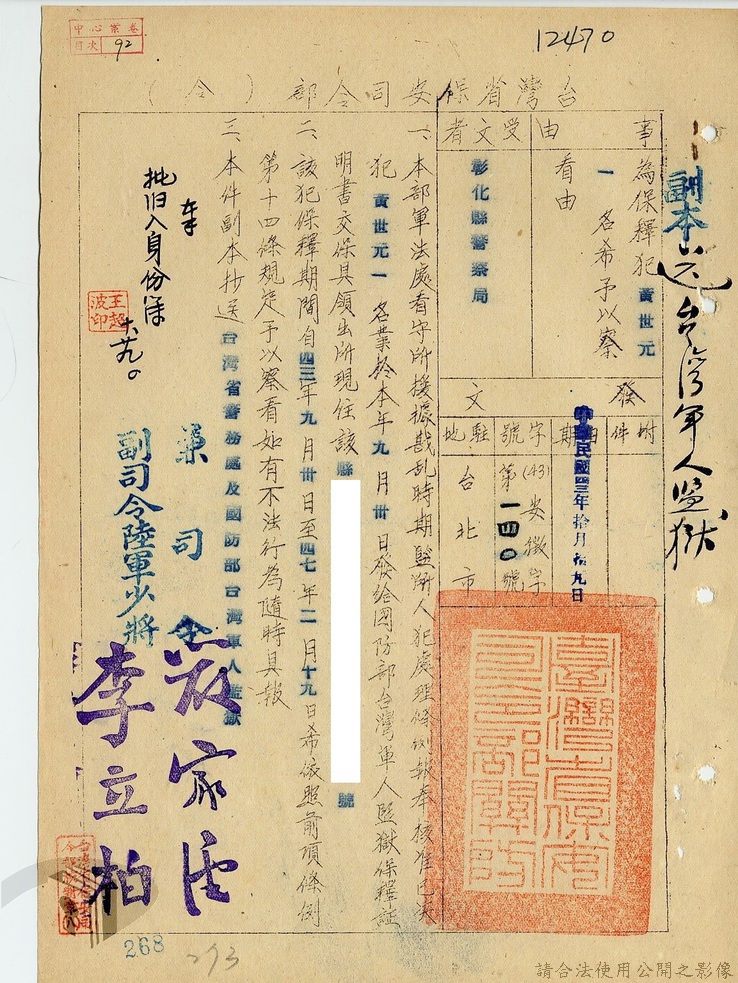 12470
中心案卷
目次
92
副本
送台灣軍人監獄
台灣省保安司令部（令）
事由
為保釋犯黃世元
一名希予以察
看由
受文者
彰化縣警察局
發文
附件
日期
中華民國四三年拾月拾九日
字號
(43)安徵字
第一四〇號
駐地
台北市
一、本部軍法處看守所接據戡乱時期監所人犯處理條例報奉核准已決
犯黃世元一名業於本年九月卅日發給國防部台灣軍人監獄保釋証
明書交保具領出所現住該縣
號
二、該犯保釋期間自四三年九月卅日至四七年二月十九日希依照前項條例
第十四條規定予以察看如有不法行為隨時具報
三、本件副本抄送台灣省警務處及國防部台灣軍人監獄
兼司令
副司令陸軍少將
李立柏
王超波印
臺灣省保安司令部關防
268
293
請合法使用公開之影像